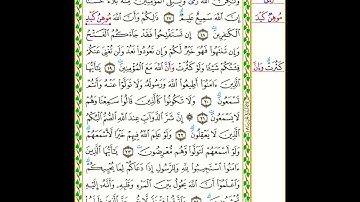 وَلَٰكِنَّ ٱللَّهَ رَمَىٰ وَلِيُبْلِيَ ٱلْمُؤْمِنِينَ مِنْهُ بَلَآءً حَسَنًا
إِنَّ ٱللَّهَ سَمِيعٌ عَلِيمٌ ١٧ ذَٰلِكُمْ وَأَنَّ ٱللَّهَ مُوهِنُ كَيْدِ
ٱلْكَٰفِرِينَ ١٨ إِن تَسْتَفْتِحُوا۟ فَقَدْ جَآءَكُمُ ٱلْفَتْحُ
وَإِن تَنتَهُوا۟ فَهُوَ خَيْرٌ لَّكُمْ وَإِن تَعُودُوا۟ نَعُدْ وَلَن تُغْنِيَ عَنكُمْ
فِئَتُكُمْ شَيْـًٔا وَلَوْ كَثُرَتْ وَأَنَّ ٱللَّهَ مَعَ ٱلْمُؤْمِنِينَ ١٩ يَٰٓأَيُّهَا
ٱلَّذِينَ ءَامَنُوٓا۟ أَطِيعُوا۟ ٱللَّهَ وَرَسُولَهُۥ وَلَا تَوَلَّوْا۟ عَنْهُ وَأَنتُمْ
تَسْمَعُونَ ٢٠ وَلَا تَكُونُوا۟ كَٱلَّذِينَ قَالُوا۟ سَمِعْنَا وَهُمْ لَا
يَسْمَعُونَ ٢١ إِنَّ شَرَّ ٱلدَّوَآبِّ عِندَ ٱللَّهِ ٱلصُّمُّ ٱلْبُكْمُ
ٱلَّذِينَ لَا يَعْقِلُونَ ٢٢ وَلَوْ عَلِمَ ٱللَّهُ فِيهِمْ خَيْرًا لَّأَسْمَعَهُمْ
وَلَوْ أَسْمَعَهُمْ لَتَوَلَّوا۟ وَّهُم مُّعْرِضُونَ ٢٣ يَٰٓأَيُّهَا ٱلَّذِينَ
ءَامَنُوا۟ ٱسْتَجِيبُوا۟ لِلَّهِ وَلِلرَّسُولِ إِذَا دَعَاكُمْ لِمَا يُحْيِيكُمْ
وَٱعْلَمُوٓا۟ أَنَّ ٱللَّهَ يَحُولُ بَيْنَ ٱلْمَرْءِ وَقَلْبِهِۦ وَأَنَّهُۥٓ إِلَيْهِ
مُوهِنٌ كَيْدَ
كَثُرَتْ وَإِنَّ